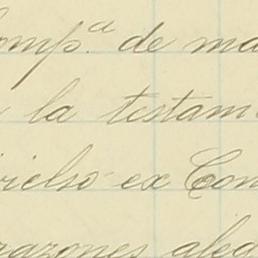 Comp.ª de ma
la testam
ex Con
razones aleg